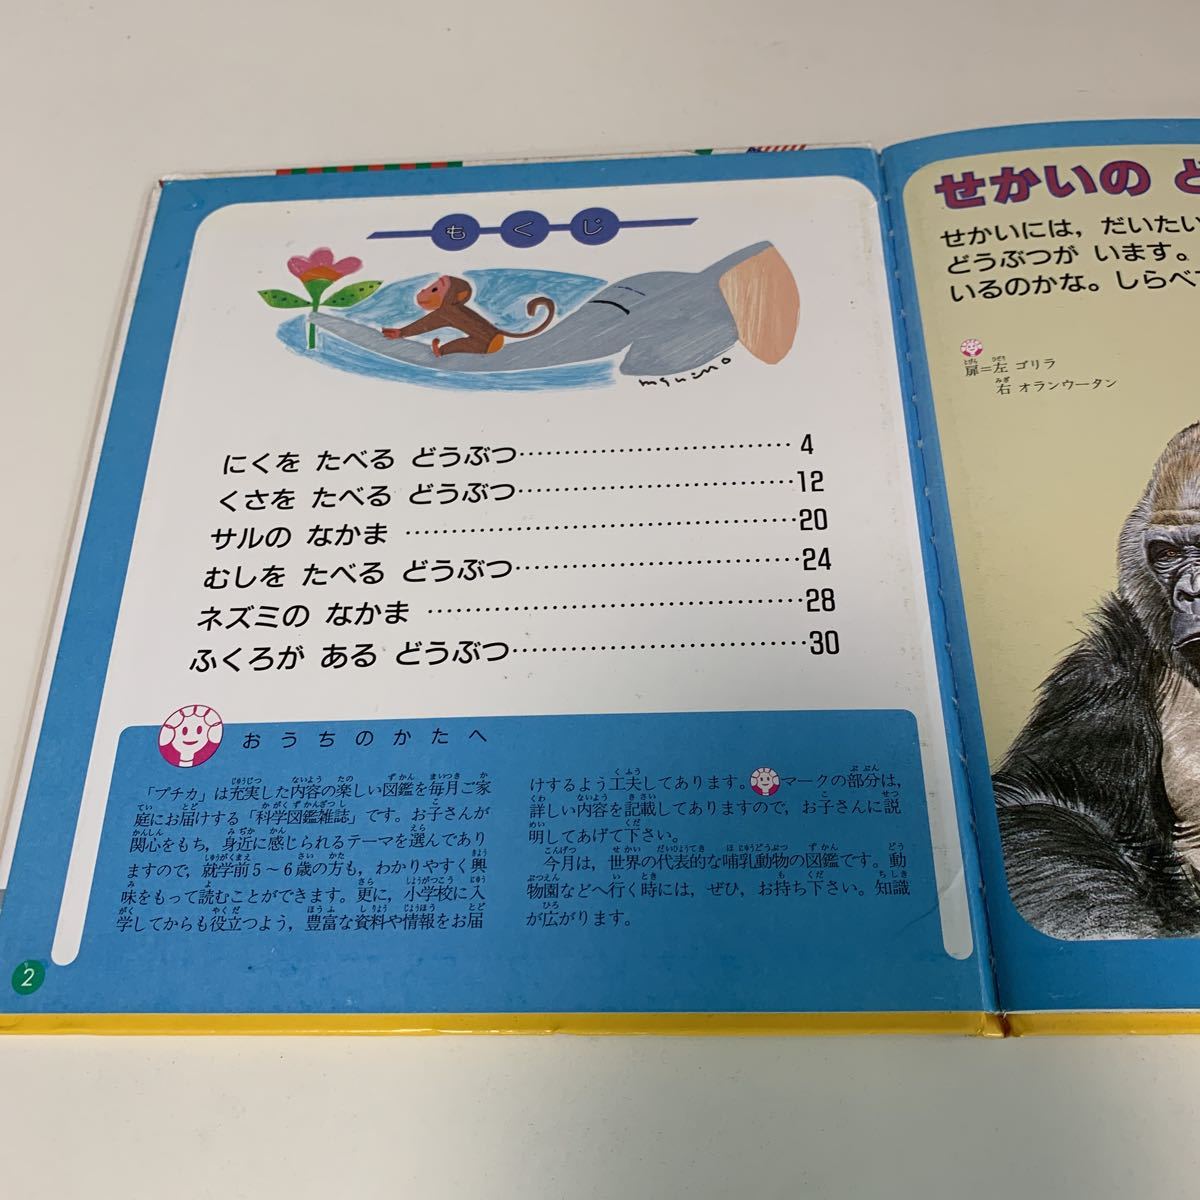 もくじ
mquino
にくを たべる どうぶつ……………………………4
くさを たべる どうぶつ……………………………12
サルの なかま ……………………………………………20
むしを たべる どうぶつ……………………………24
ネズミの なかま …………………………………………28
ふくろが ある どうぶつ……………………………30
おうちのかたへ
「プチカ」は充実した内容の楽しい図鑑を毎月ご家
庭にお届けする「科学図鑑雑誌」です。お子さんが
関心をもち,身近に感じられるテーマを選んであり
ますので,就学前5〜6歳の方も,わかりやすく興
味をもって読むことができます。更に,小学校に入
学してからも役立つよう,豊富な資料や情報をお届
けするよう工夫してあります。マークの部分は,
詳しい内容を記載してありますので,お子さんに説
明してあげて下さい。
今月は,世界の代表的な哺乳動物の図鑑です。動
物園などへ行く時には,ぜひ,お持ち下さい。知識
が広がります。
2
せかいの ど
せかいには,だいたい
どうぶつが います。
いるのかな。しらべて
扉=左 ゴリラ
右 オランウータン